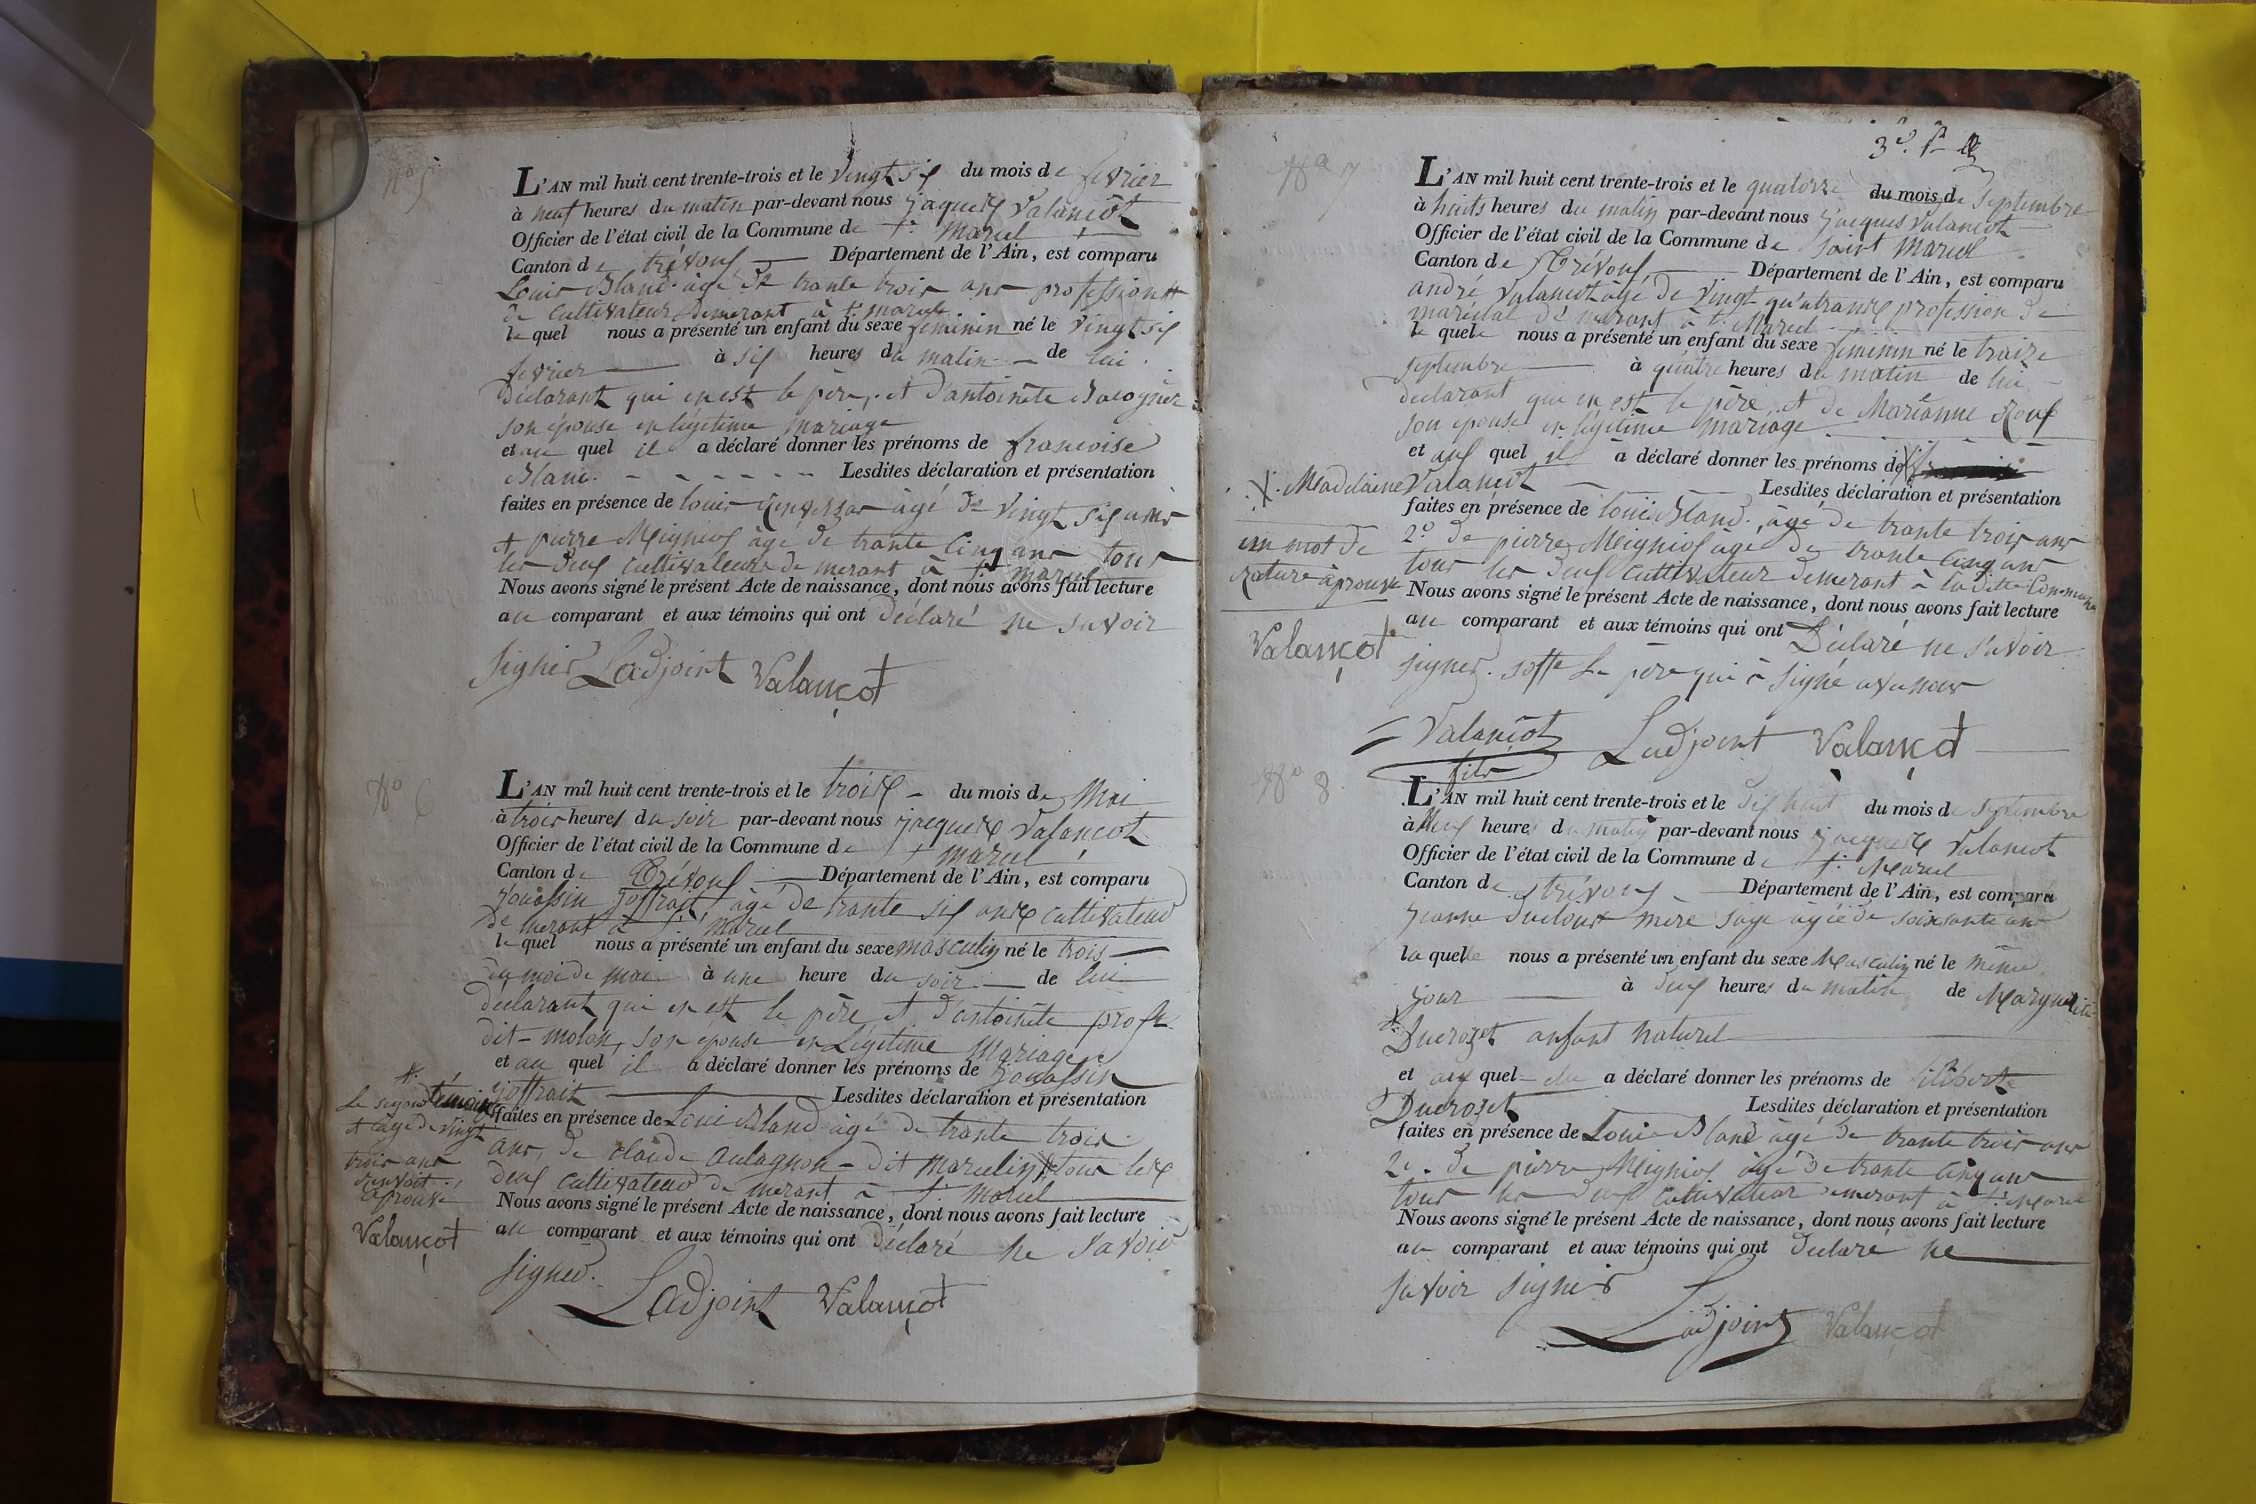 No 5
L'AN mil huit cent trente-trois et le vingt six du mois de fevrier
à neuf heures du matin par-devant nous jaques Valançot
Officier de l'état civil de la Commune de St Marcel
Canton de trévoux Département de l'Ain, est comparu
Louis Bland âgé de trante trois ans profession
de cultivateur demerant à St marcel
le quel nous a présenté un enfant du sexe feminin né le vingt six
fevrier à six heures du matin de lui
déclarant qui en est le père, et d'antoinéte
son épouse en légitime mariage
et au quel il a déclaré donner les prénoms de francoise
Blanc Lesdites déclaration et présentation
faites en présence de louis âgé de vingt six ans
et pierre Meigniex âgé de trante cinq ans tous
les deux cultivateurs de merant à St marcel
Nous avons signé le présent Acte de naissance, dont nous avons fait lecture
au comparant et aux témoins qui ont déclaré ne savoir
signer Ladjoint Valançot
No 6
L'AN mil huit cent trente-trois et le trois du mois de Mai
à trois heures du soir par-devant nous jaques Valançot
Officier de l'état civil de la Commune de St marcel
Canton de Trévoux Département de l'Ain, est comparu
joffrait âgé de trante six ans cultivateur
de merant à St marcel
le quel nous a présenté un enfant du sexe masculin né le trois
du moi de mai à une heure du soir de lui
declarant qui en est le père et d'antoinéte
dit molon, son épouse en Légitime Mariage
et au quel il a déclaré donner les prénoms de
joffrait Lesdites déclaration et présentation
faites en présence de Loui Bland âgé de trante trois
ans, de claude aulagnon dit marcelin tous les
deux cultivateurs de merant à St marcel
Nous avons signé le présent Acte de naissance, dont nous avons fait lecture
au comparant et aux témoins qui ont déclaré ne savoir
signer.
Ladjoint Valançot
témoin
et âgé de vingt
trois ans
aprouvé
Valançot
No 7
L'AN mil huit cent trente-trois et le quatorze du mois de septembre
à huits heures du matin par-devant nous jacques Valançot
Officier de l'état civil de la Commune de saint Marcel
Canton de Trévoux Département de l'Ain, est comparu
andré Valancot âgé de vingt qu'atre ans profession de
maréchal de merant à St Marcel
le quel nous a présenté un enfant du sexe féminin né le traize
septembre à quatre heures du matin de lui
declarant qui en est le père, et de Marianne Roux
son epouse en légitime mariage
et aux quel il à déclaré donner les prénoms de
X Madelaine Valancot Lesdites déclaration et présentation
faites en présence de loui Bland, âgé de trante trois ans
2º de pierre Meigniex âgé de trante cinq ans
tous les deux cultivateur demerant à la ditte Commune
Nous avons signé le présent Acte de naissance, dont nous avons fait lecture
au comparant et aux témoins qui ont Déclaré ne savoir
signer. le père qui à signé
Valançot fils Ladjoint Valançot
un mot de
rature aprouvé
Valançot
No 8
L'AN mil huit cent trente-trois et le dix huit du mois de septembre
à heures du matin par-devant nous jacques Valancot
Officier de l'état civil de la Commune de St Marcel
Canton de trévoux Département de l'Ain, est comparu
jeanne mère sage âgée de soixante ans
la quelle nous a présenté un enfant du sexe Masculin né le même
jour à deux heures du matin de Marguerite
Ducrozet anfant naturel
et aux quel elle a déclaré donner les prénoms de
Ducrozet Lesdites déclaration et présentation
faites en présence de Loui Bland âgé de trante trois ans
2º de pierre Meigniex âgé de trante cinq ans
tous les deux cultivateur demerant à St Marcel
Nous avons signé le présent Acte de naissance, dont nous avons fait lecture
au comparant et aux témoins qui ont declaré ne
savoir signer
Ladjoint Valançot